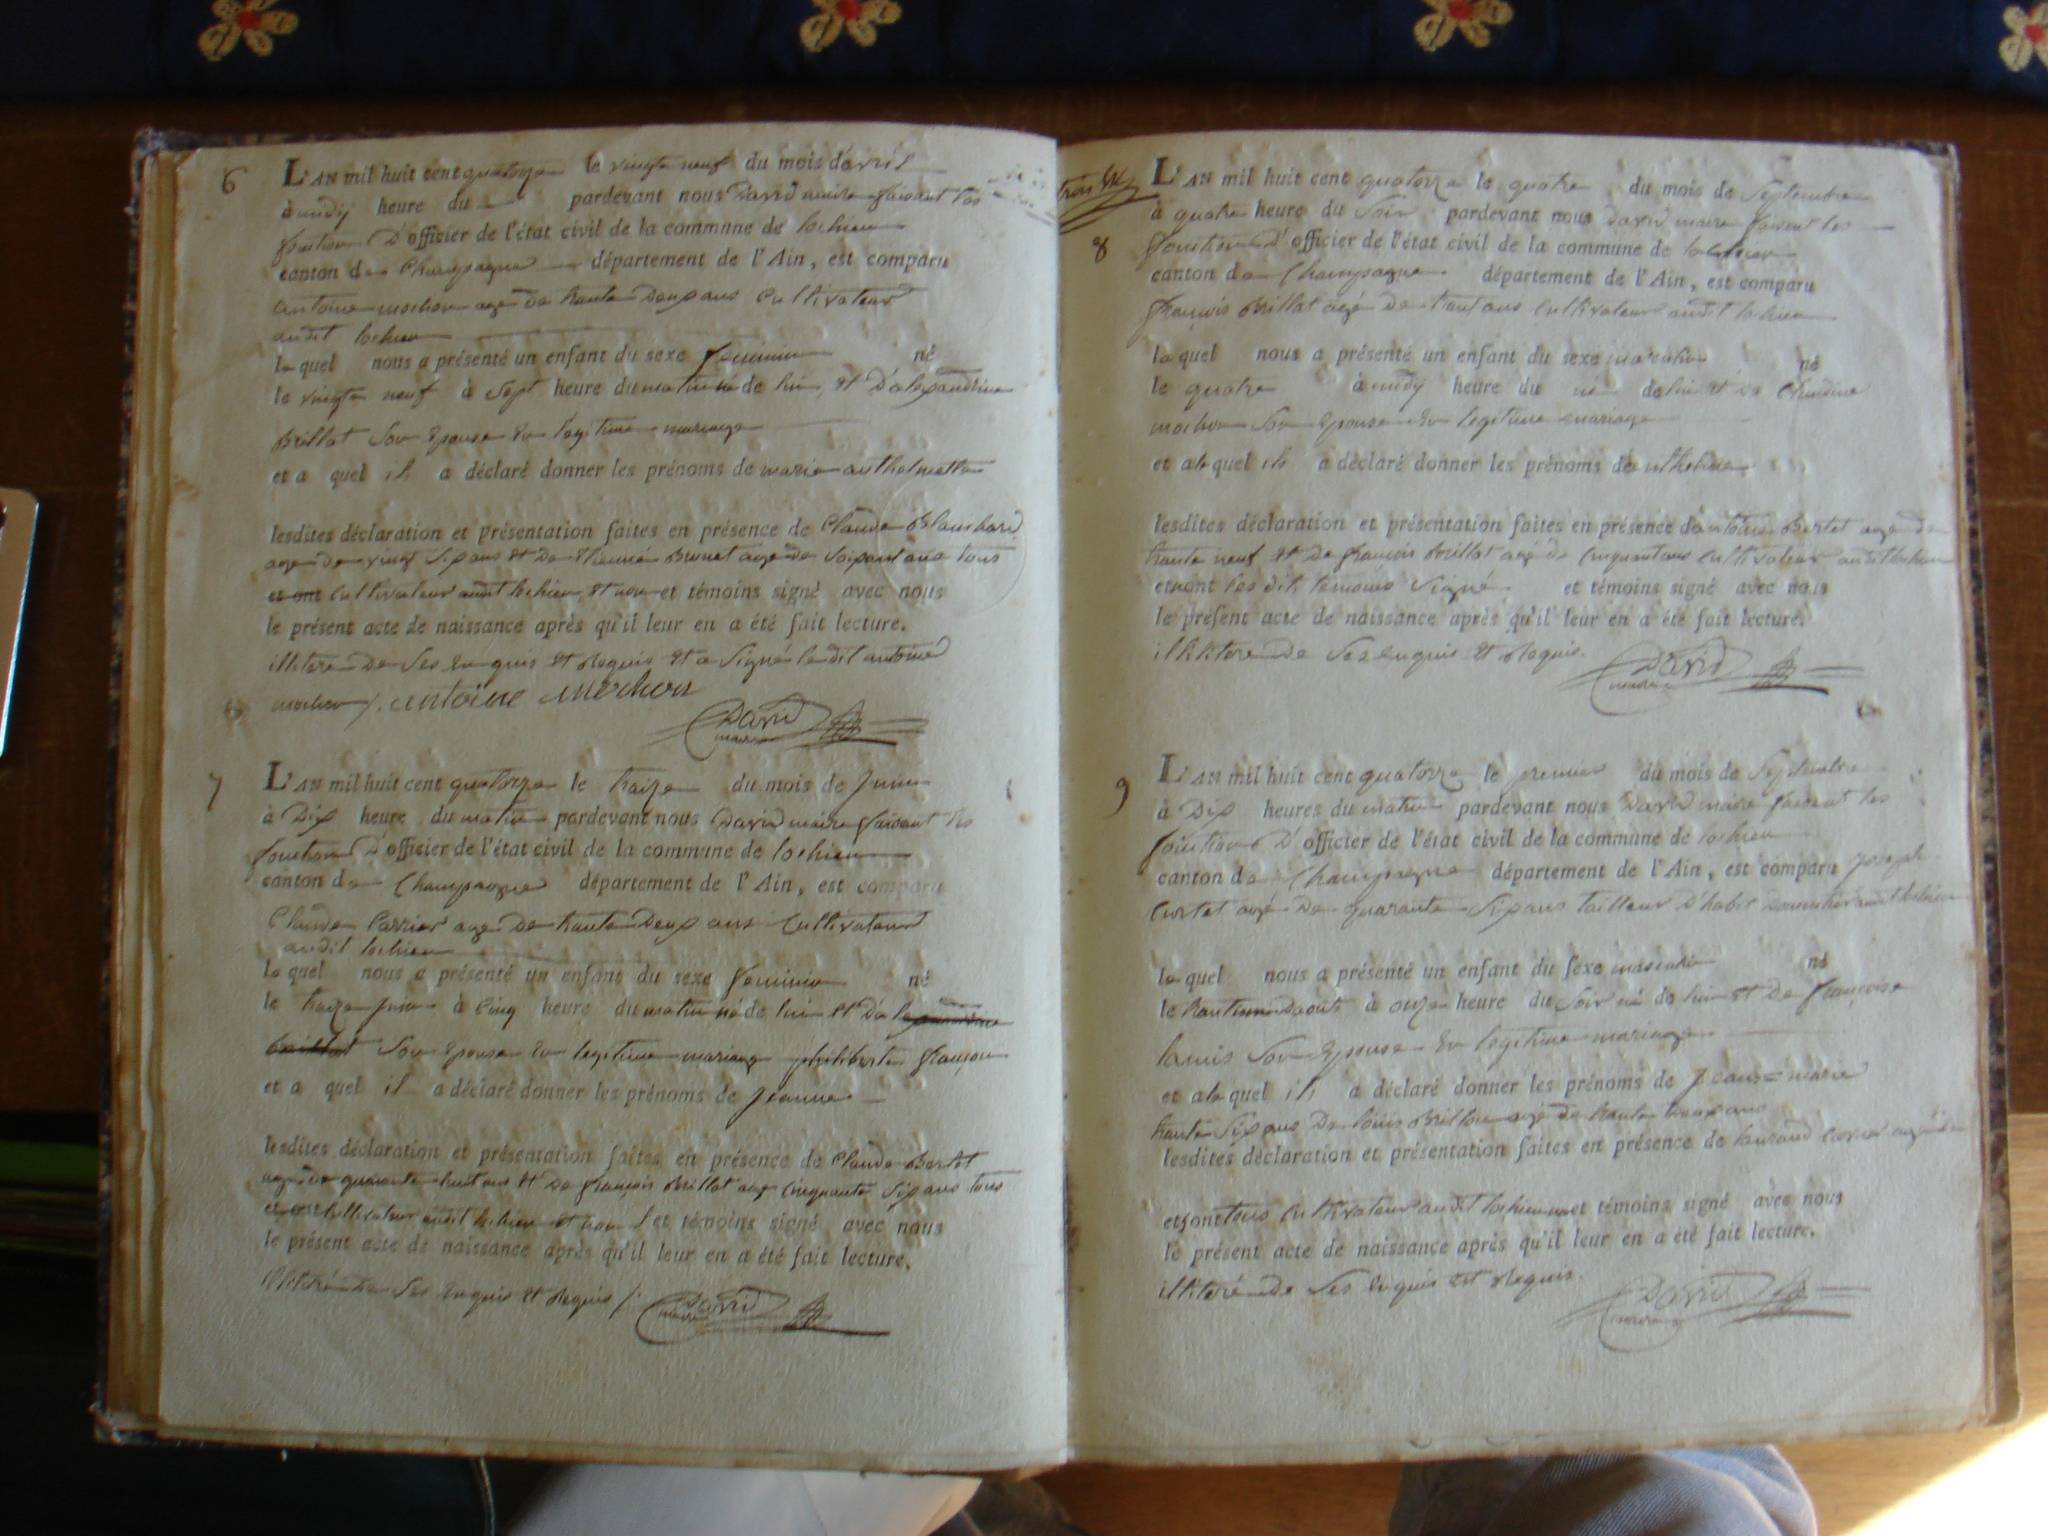 6
L'AN mil huit cent quatorze le vingte neuf du mois d'avril
à midy heure du pardevant nous David maire faisant les
fonction D'officier de l'état civil de la commune de lochieu
canton de Champagne département de l'Ain, est comparu
antoine mochon agé de trante deux ans Cultivateur
audit lochieu
le quel nous a présenté un enfant du sexe feminin né
le vingte neuf à sept heure du matin né de lui, et D'alexandrine
Brillat Son Epouse En legitime mariage
et a quel il a déclaré donner les prénoms de marie anthelmette
lesdites déclaration et présentation faites en présence de Claude Blanchard
age de vingt Six ans Et De Etienne Brunet age de Soixant ans tous
et ont Cultivateur audit lochieu et non et témoins signé avec nous
le présent acte de naissance après qu'il leur en a été fait lecture.
illitere De Ses Enquis Et Requis Et a Signé le dit antoine
mochon /. antoine mochon
David
maire
7
L'AN mil huit cent quatorze le traize du mois de Juin
à Dix heure du matin pardevant nous David maire faisant les
fonction D'officier de l'état civil de la commune de lochieu
canton de Champagne département de l'Ain, est comparu
Claude Carrier age de trante Deux ans Cultivateur
audit lochieu
le quel nous a présenté un enfant du sexe feminin né
le traize Juin à Cinq heure du matin né de lui Et D'alexandrine
Brillat Son Epouse En legitime mariage philiberte françon
et a quel il a déclaré donner les prénoms de Jeanne
lesdites déclaration et présentation faites en présence de Claude Bertet
agé de quarante huit ans Et De françois Brillat age Cinquante Six ans tous
et ont Cultivateur audit lochieu Et non et témoins signé avec nous
le présent acte de naissance après qu'il leur en a été fait lecture.
illiteré De Ses Enquis Et Requis /.
David
maire
8
L'AN mil huit cent quatorze le quatre du mois de Septembre
à quatre heure du Soir pardevant nous David maire faisant les
fonction D'officier de l'état civil de la commune de lochieu
canton de Champagne département de l'Ain, est comparu
françois Brillat agé De trant ans Cultivateur audit lochieu
le quel nous a présenté un enfant du sexe masculin né
le quatre à midy heure du né de lui Et De Claudine
mochon Son Epouse En legitime mariage
et a le quel il a déclaré donner les prénoms de
lesdites déclaration et présentation faites en présence d'antoine Bertet age de
trante neuf Et De françois Brillat agé de Cinquant ans Cultivateur audit lochieu
et nont les dit temoins Signé et témoins signé avec nous
le présent acte de naissance après qu'il leur en a été fait lecture.
illitere De Ses Enquis Et Requis.
David
maire
9
L'AN mil huit cent quatorze le premier du mois de Septembre
à Dix heures du matin pardevant nous David maire faisant les
fonction D'officier de l'état civil de la commune de lochieu
canton de Champagne département de l'Ain, est comparu Joseph
Curtet agé De quarante Six ans tailleur D'habit Domicilié audit lochieu
le quel nous a présenté un enfant du sexe masculin né
le trantun Daout à onze heure du Soir né de lui Et De françoise
Son Epouse En legitime mariage
et a le quel il a déclaré donner les prénoms de Jean=marie
trante Six ans De louis Brillon agé de trante troix ans
lesdites déclaration et présentation faites en présence de Carrier agé de
et sont tous Cultivateur audit lochieu et témoins signé avec nous
le présent acte de naissance après qu'il leur en a été fait lecture.
illiteré De Ses Enquis Et Requis.
David
maire